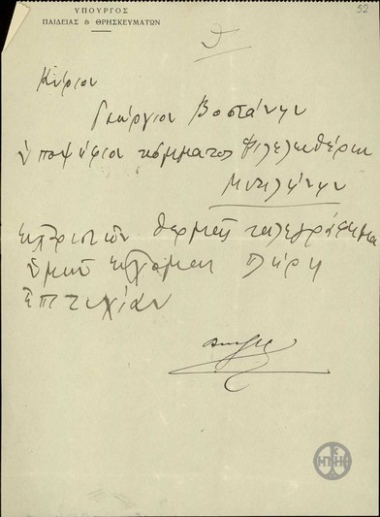 ΥΠΟΥΡΓΟΣ
ΠΑΙΔΕΙΑΣ & ΘΡΗΣΚΕΥΜΑΤΩΝ
52
Κύριον
Γεώργιον Βοστάνην
Υποψήφιον κόμματος Φιλελευθέρων
Μυτιλήνην
Ευχαριστών θερμώς τηλεγράφημα
υμών εύχομαι πλήρη
επιτυχίαν